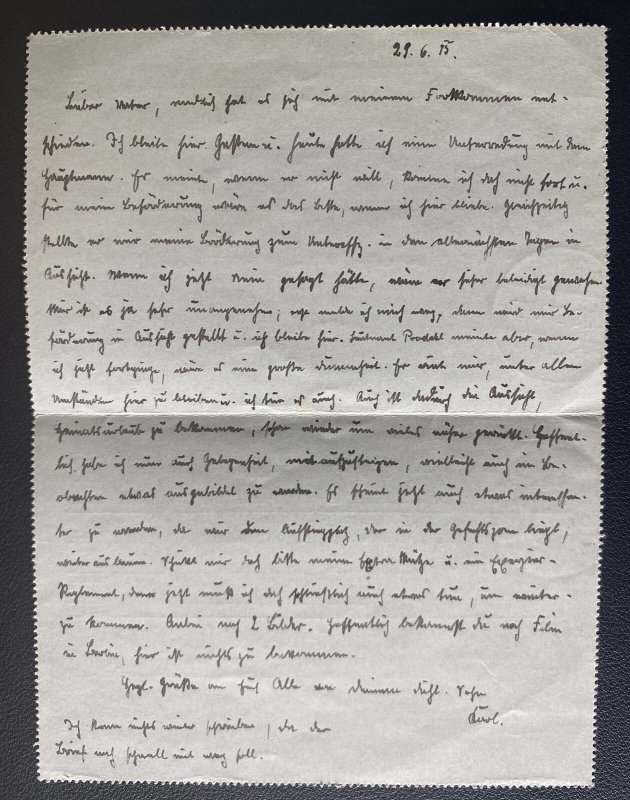 29. 6. 15.
Lieber Vater, endlich hat es sich mit meinem Fortkommen ent-
schieden. Ich bleibe hier. Gestern u. heute hatte ich eine Unterredung mit dem
Hauptmann. Er meinte, wenn er nicht will, komme ich doch nicht fort u.
für meine Beförderung wäre es das Beste, wenn ich hier bliebe. Gleichzeitig
stellte er mir meine Beförderung zum Unteroffz. in den allernächsten Tagen in
Aussicht. Wenn ich jetzt Nein gesagt hätte, wäre er sehr beleidigt gewesen.
Mir ist es ja sehr unangenehm; erst melde ich mich weg, dann wird mir Be-
förderung in Aussicht gestellt u. ich bleibe hier. Leutnant meinte aber, wenn
ich jetzt fortginge, wäre es eine große Dummheit. Er riete mir, unter allen
Umständen hier zu bleiben u. ich tue es auch. Auch ist dadurch die Aussicht,
Heimatsurlaub zu bekommen, schon wieder um vieles näher gerückt. Hoffent-
lich habe ich nun auch Gelegenheit, mit aufzusteigen, vielleicht auch im Be-
obachten etwas ausgebildet zu werden. Es scheint jetzt auch etwas interessan-
ter zu werden, da wir den Aufstiegplatz, der in der Gefechtszone liegt,
weiter ausbauen. Schickt mir doch bitte meine Extra Mütze u. ein Exerzier-
Reglement, denn jetzt muß ich doch schließlich auch etwas tun, um weiter-
zu kommen. Anbei noch 2 Bilder. Hoffentlich bekommst du noch Film
in Berlin, hier ist nichts zu bekommen.
Herzl. Grüße an Euch Alle von Deinem dkbl. Sohn
Karl.
Ich kann nichts weiter schreiben, da der
Brief noch schnell mit weg soll.